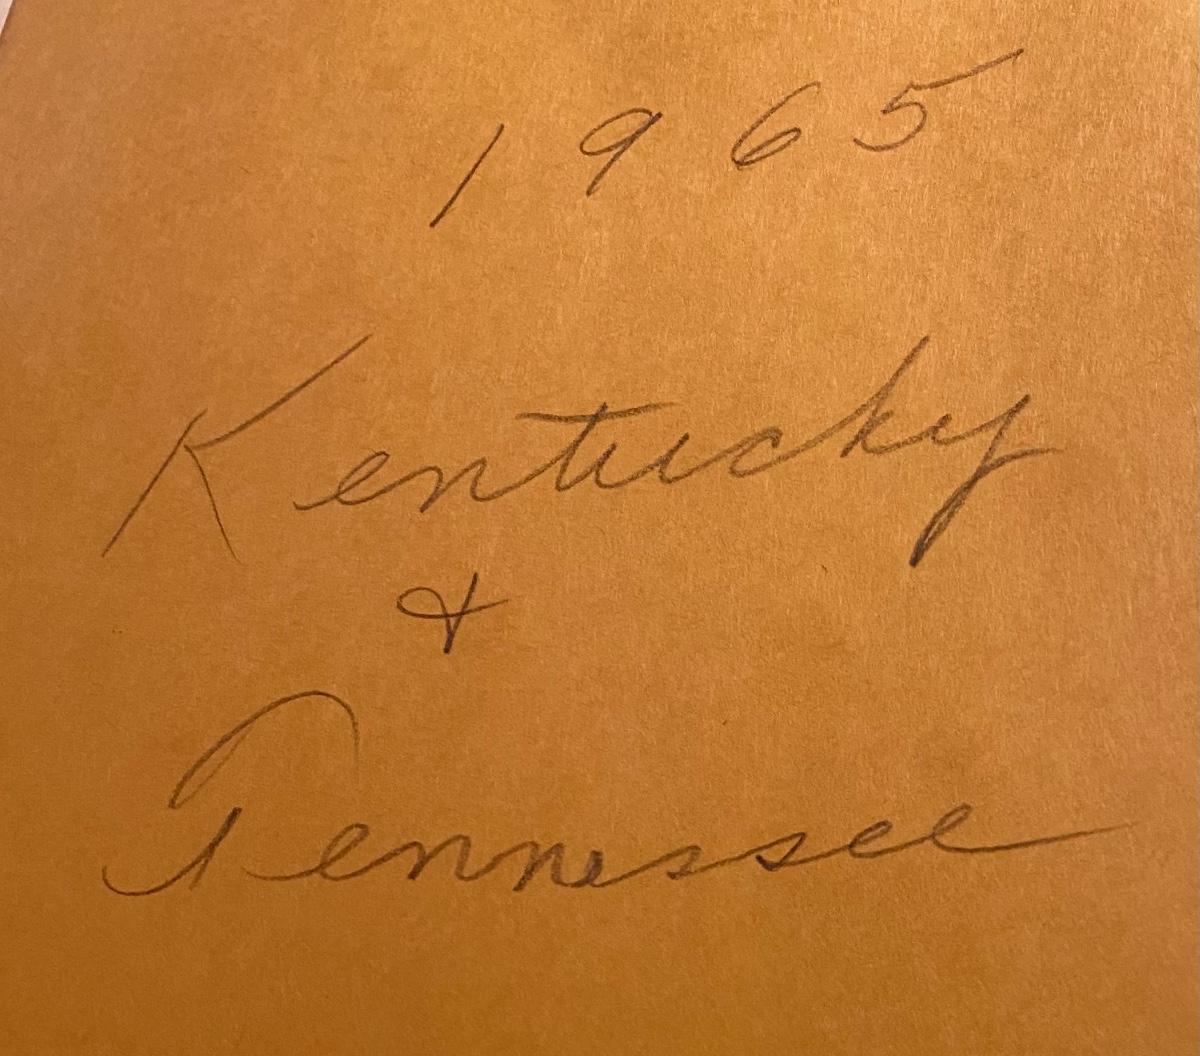 1965
Kentucky
&
Tennessee